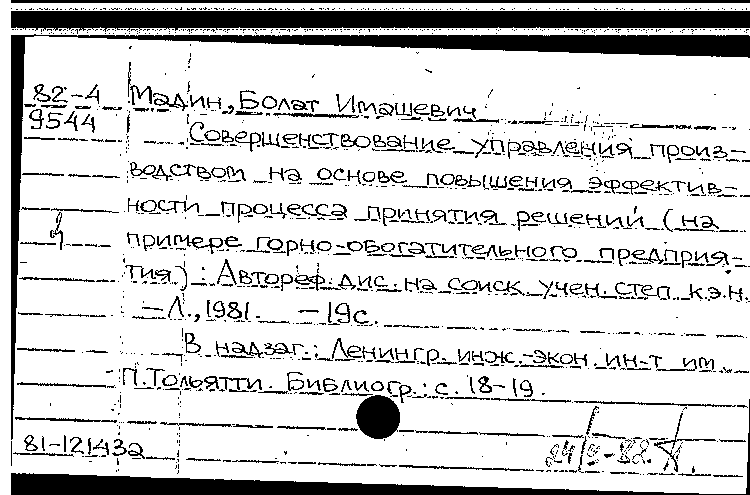 82-4 Мадин, Болат Имашевич
9544
Совершенствование управления произ-
водством на основе повышения эффектив-
ности процесса принятия решений (на
примере горно-обогатительного предприя-
тия) : Автореф. дис. на соиск. учен. степ. к.э.н.
– Л., 1981. – 19с.
В надзаг.: Ленингр. инж.-экон. ин-т им.
П. Тольятти. Библиогр.: с. 18-19.
81-121432